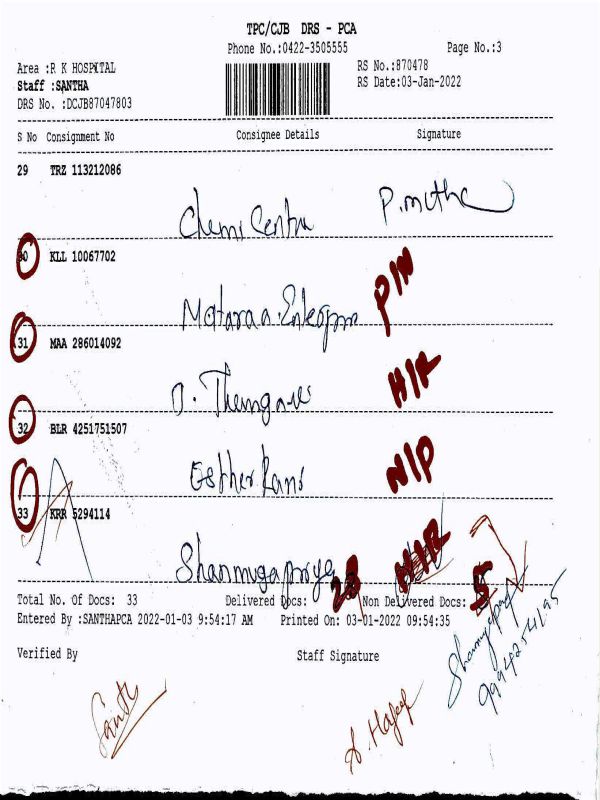 TPC/CJB DRS - PCA
Phone No.:0422-3505555 Page No.:3
Area :R K HOSPITAL RS No.:870478
Staff :SANTHA RS Date:03-Jan-2022
DRS No. :DCJB87047803
S No Consignment No Consignee Details Signature
29 TRZ 113212086
Chemi Centre
30 KLL 10067702
PIN
31 MAA 286014092
HIR
32 BLR 4251751507
Esther Rani NIP
33 KRR 5294114
Shanmugapriya HIR
Total No. Of Docs: 33 Delivered Docs: 28 Non Delivered Docs: 5
Entered By :SANTHAPCA 2022-01-03 9:54:17 AM Printed On: 03-01-2022 09:54:35
Verified By Staff Signature